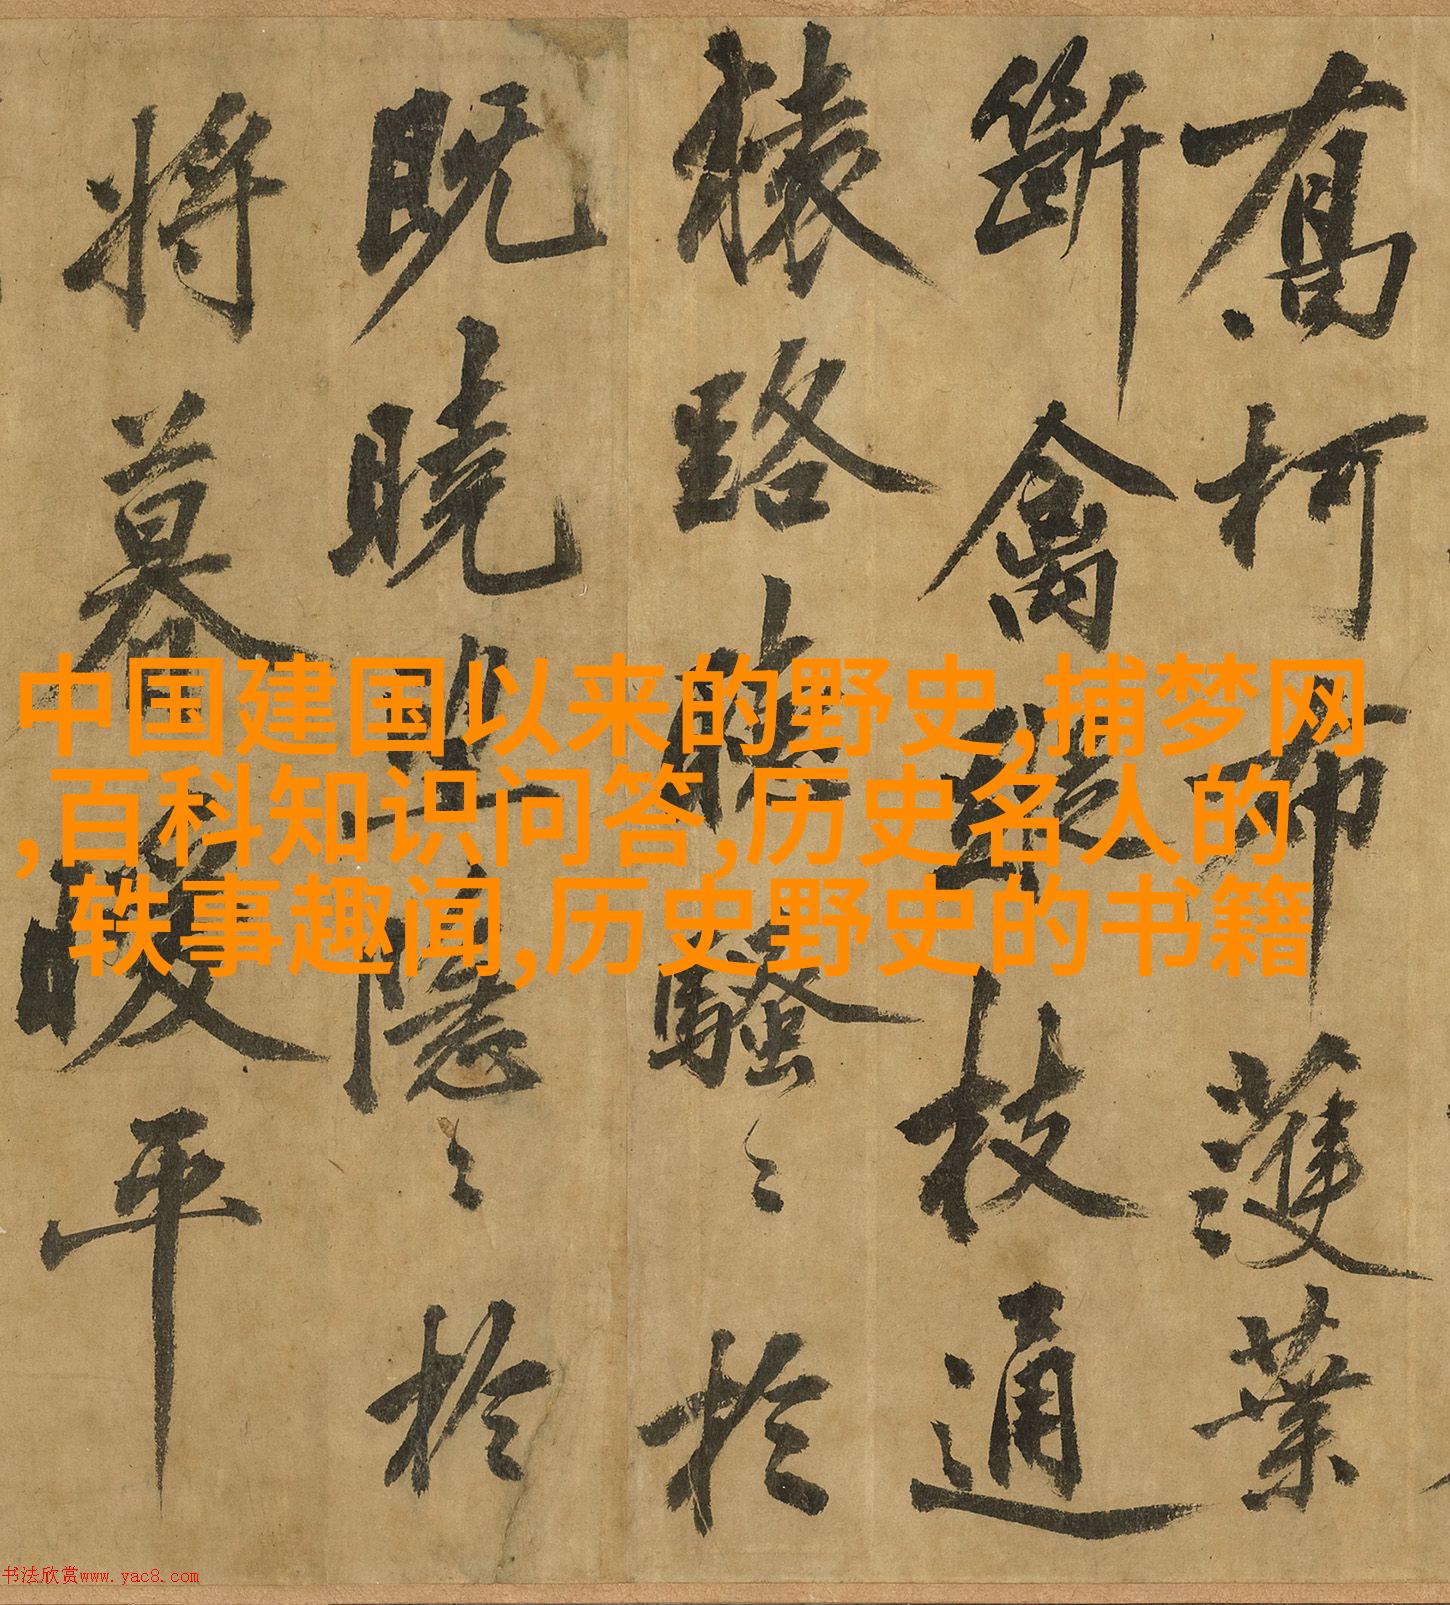 喬柯布濩葉
斷禽枝通
猿路聽騷〻於
既曉隱〻於
將暮暖平
中国建国以来的野史,捕梦网
,百科知识问答,历史名人的
轶事趣闻,历史野史的书籍
书法欣赏www.yac8.com